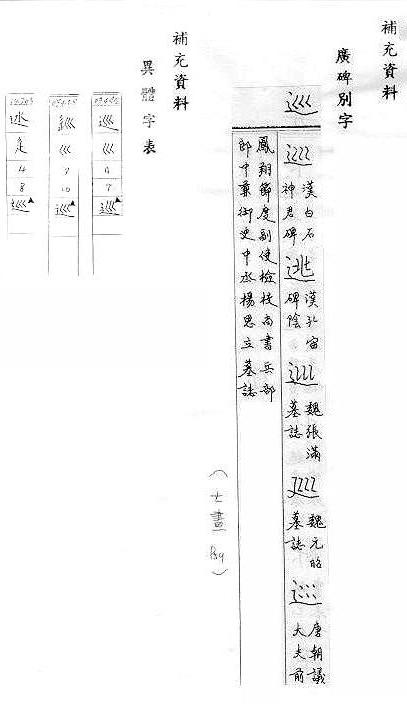 補充資料
廣碑別字
巡
漢白石神君碑
漢孔宙碑陰
魏張滿墓誌
魏元昭墓誌
唐朝議大夫前
鳳翔節度副使檢校尚書兵部
郎中兼御史中丞楊思立墓誌
(七畫 P89)
補充資料
異體字表
巡
巛
7
巡▲
巛
7
10
巡▲
辵
4
8
巡▲